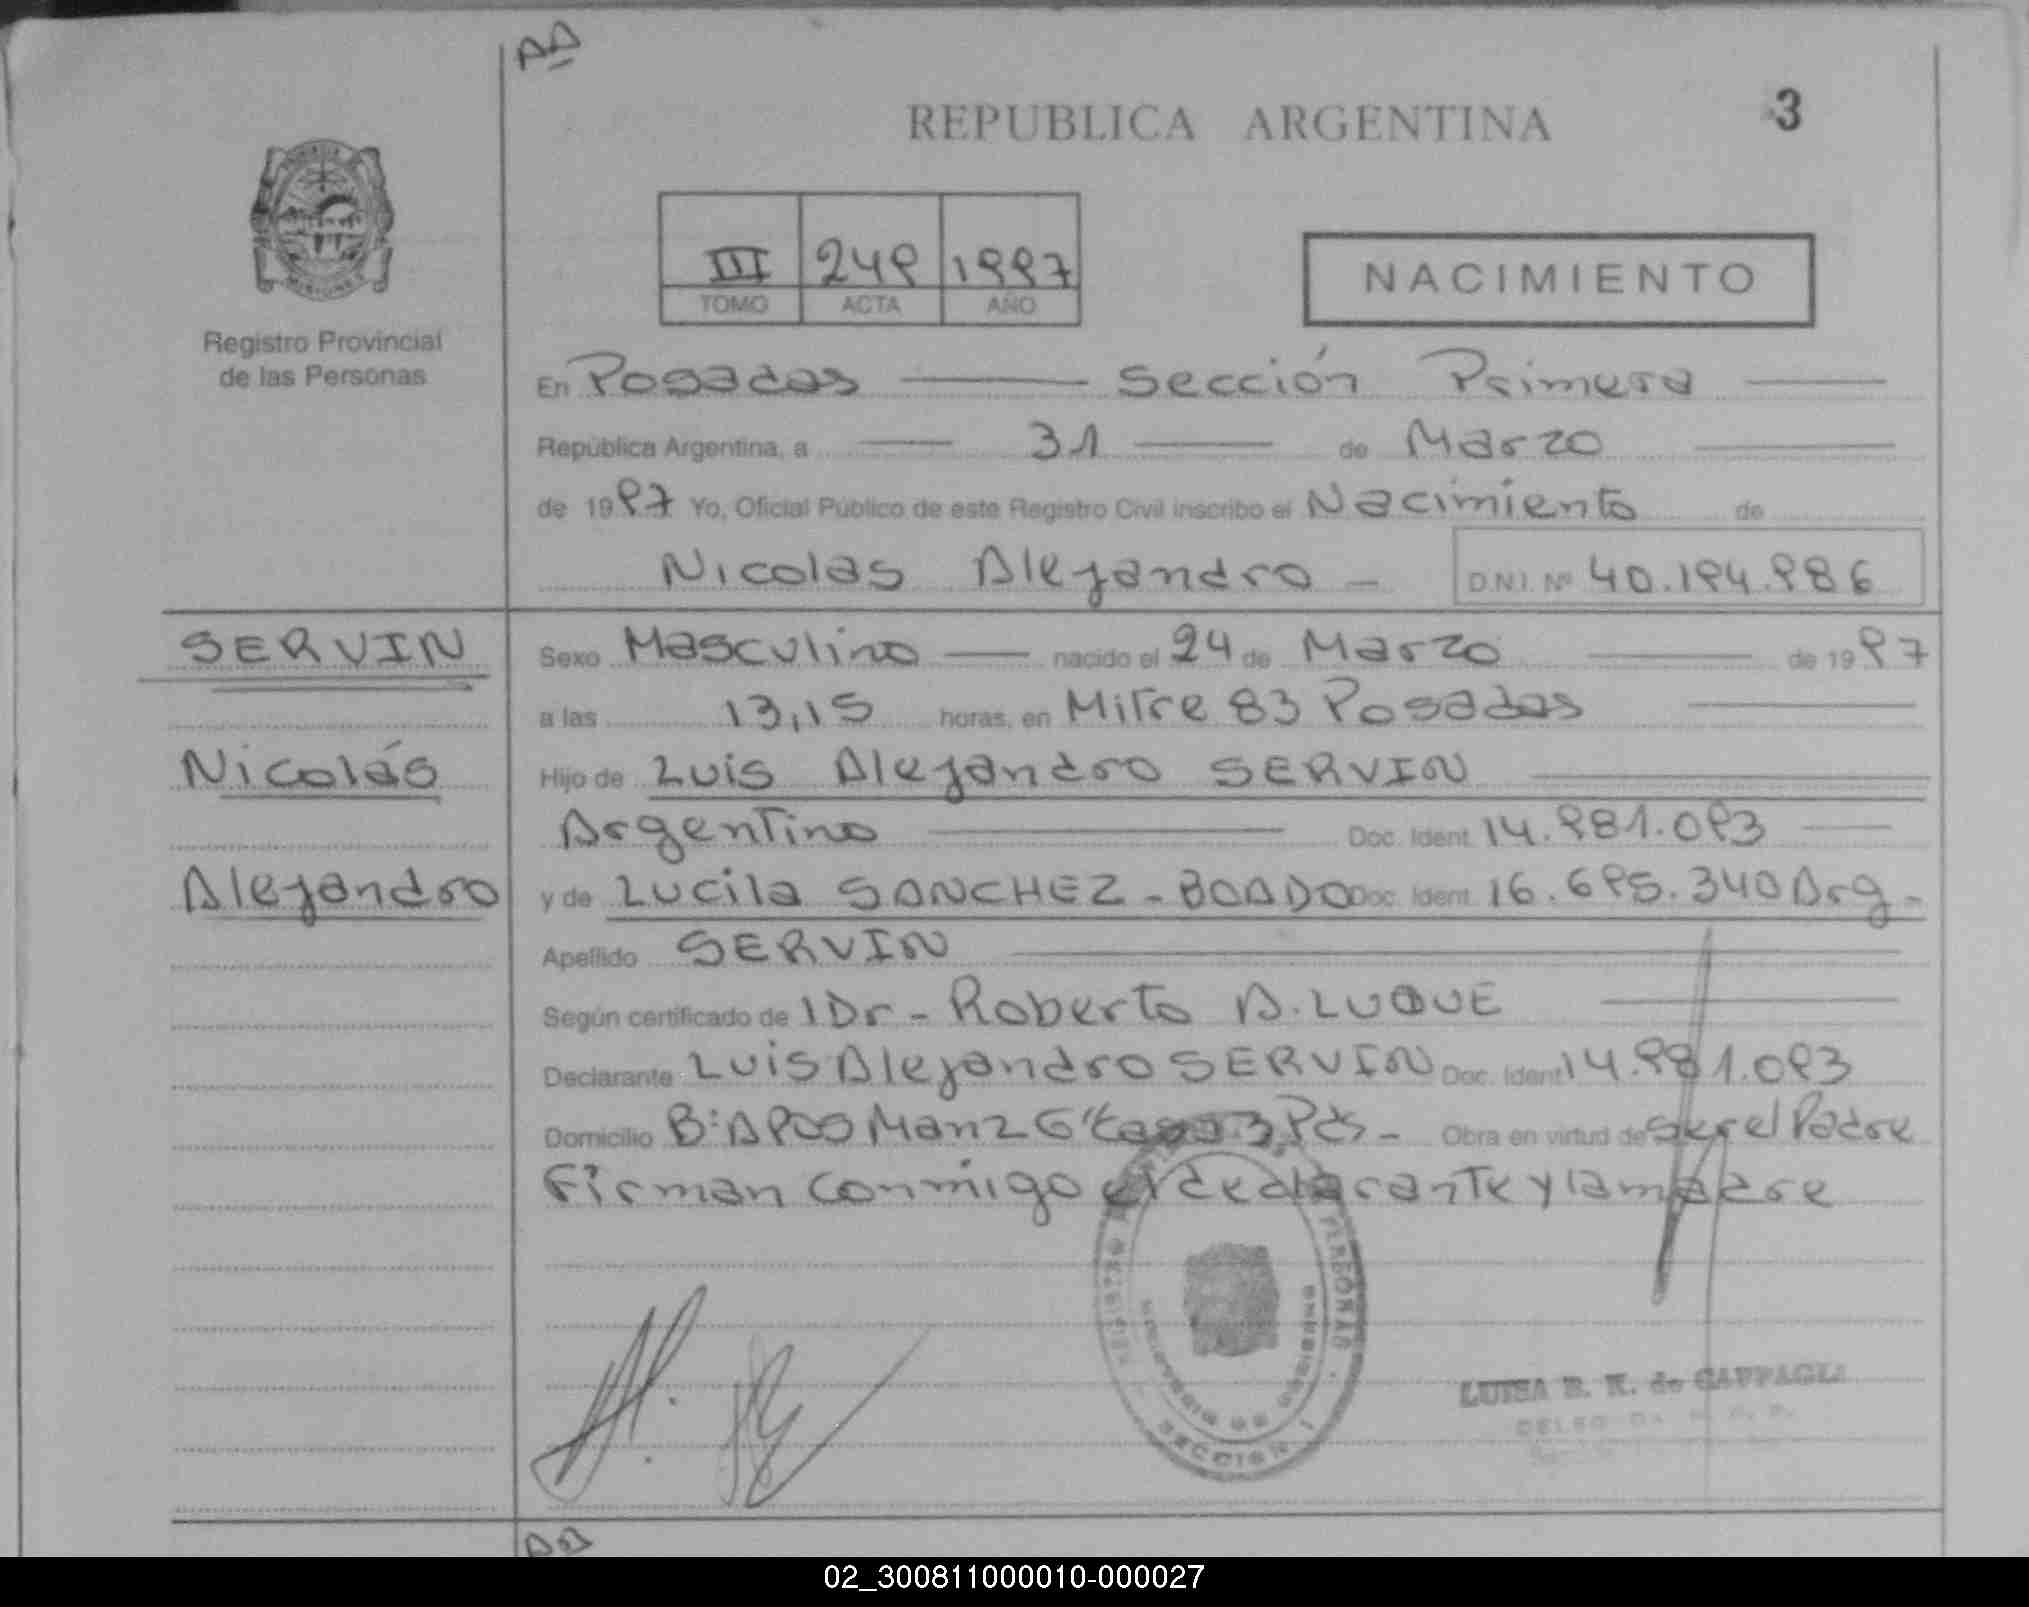 AA
REPUBLICA ARGENTINA
3
III 249 1997
TOMO ACTA AÑO
NACIMIENTO
Registro Provincial
de las Personas
En Posadas Sección Primera
República Argentina, a 31 de Marzo
de 1997 Yo, Oficial Público de este Registro Civil inscribo el Nacimiento de
Nicolas Alejandro - D.N.I. Nº 40.194.986
SERVIN
Sexo Masculino nacido el 24 de Marzo de 1997
a las 13,15 horas, en Mitre 83 Posadas
Nicolás
Hijo de Luis Alejandro SERVIN
Argentino Doc. Ident. 14.981.093
Alejandro
y de Lucila SANCHEZ - BOADO Doc. Ident. 16.695.340 Arg -
Apellido SERVIN
Según certificado de l Dr - Roberto A. LUQUE
Declarante Luis Alejandro SERVIN Doc. Ident. 14.981.093
Domicilio Bº APOS Manz G 3 Pds - Obra en virtud de ser el Padre
Firman conmigo el declarante y la madre
PERSONAS
SECCION 1
LUISA R. K. de
AA
02_300811000010-000027